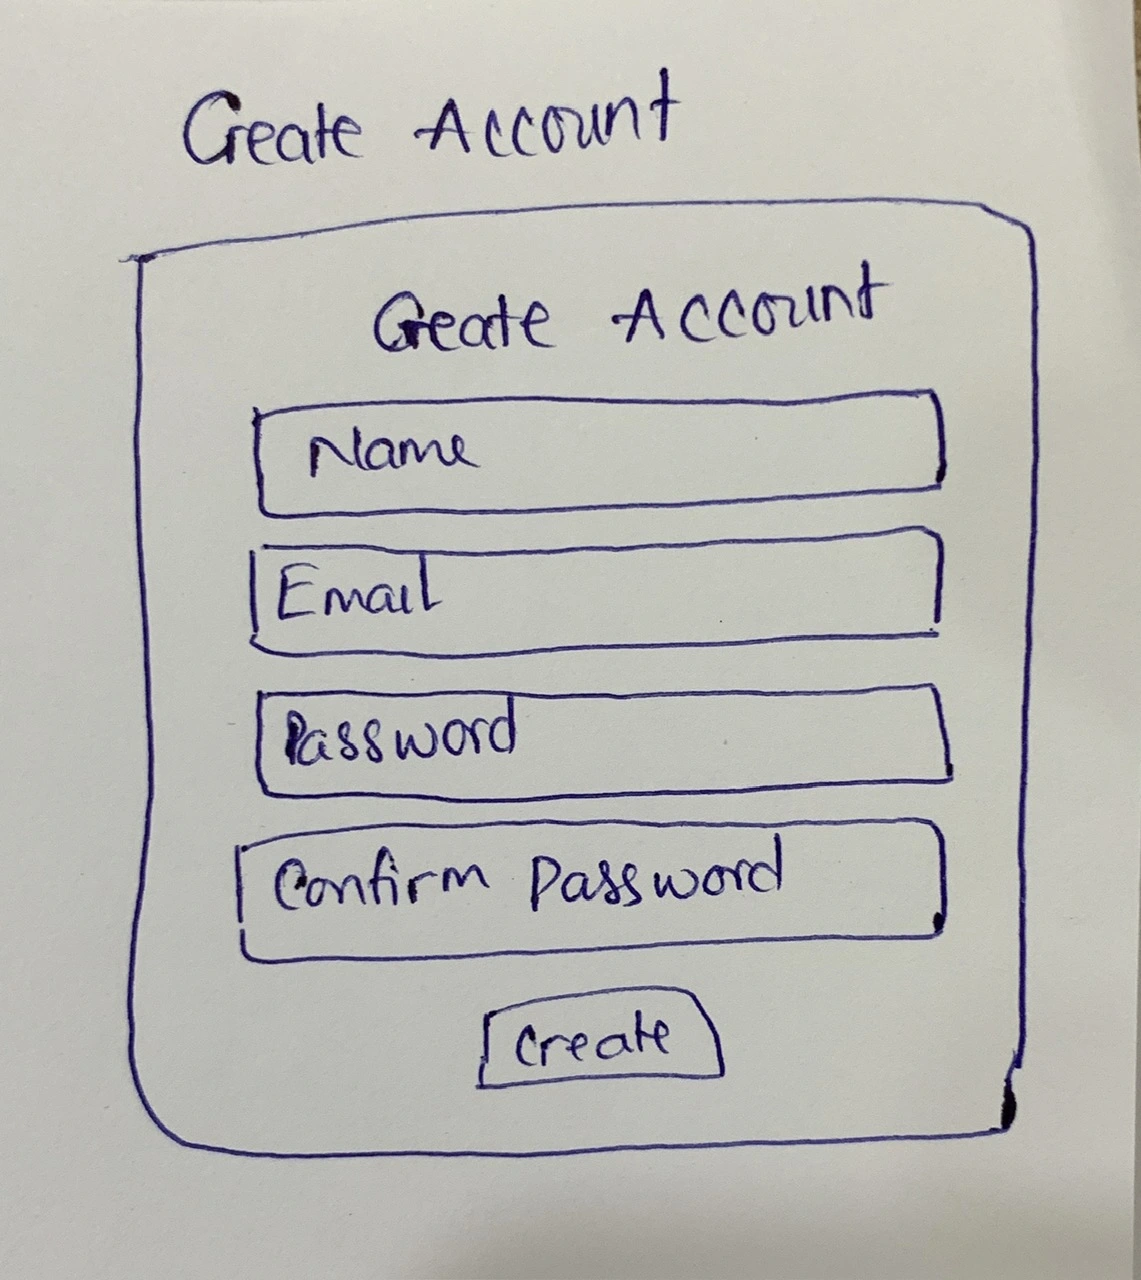 Create Account
Create Account
Name
Email
Password
Confirm Password
Create